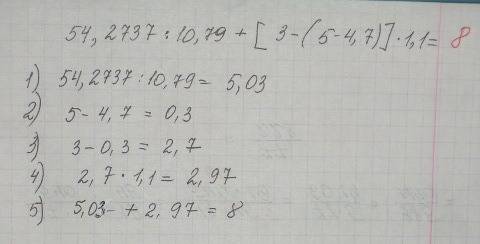 54,2737 : 10,79 + [ 3 - ( 5 - 4,7 ) ] · 1,1 = 8
1) 54,2737 : 10,79 = 5,03
2) 5 - 4,7 = 0,3
3) 3 - 0,3 = 2,7
4) 2,7 · 1,1 = 2,97
5) 5,03 - + 2,97 = 8